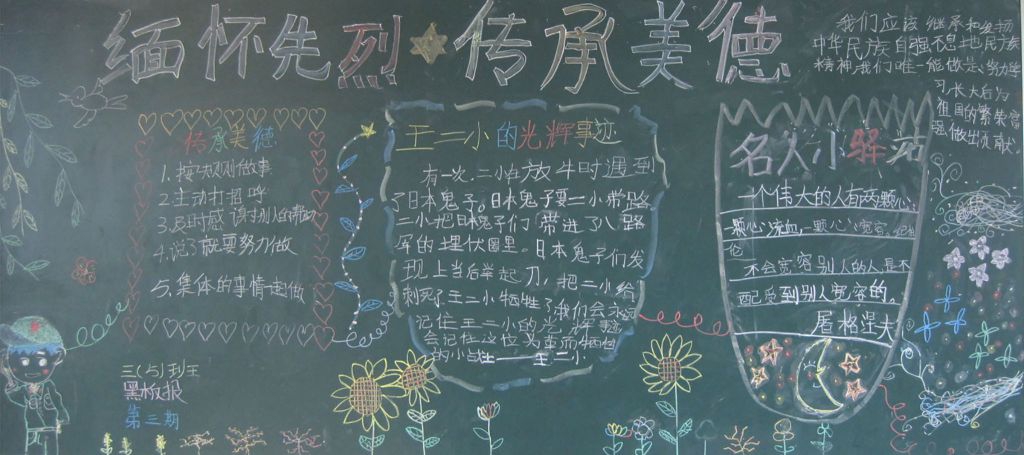 缅怀先烈★传承美德
我们应该继承和发扬
中华民族自强不息地民族
精神,我们唯一能做是、努力学
习,长大后为
祖国的繁荣富
强做出贡献
传承美德
1.按规则做事
2.主动打招呼
3.及时感谢别人的帮助
4.说了就要努力做
5.集体的事情一起做
王二小的光辉事迹
有一次,二小在放牛时遇到
了日本鬼子。日本鬼子要二小带路
二小把日本鬼子们带进了八路
军的埋伏圈里。日本鬼子们发
现上当后举起刀,把二小给
刺死了王二小牺牲了我们会永远
记住王二小的光辉事迹
会记住这位为
的小 ——王二小
名人小驿站
一个伟大的人有两颗心:
颗心流血,一颗心宽容。
不会宽容别人的人是不
配受到别人宽容的。
屠格涅夫
三(5)班
黑板报
第三期